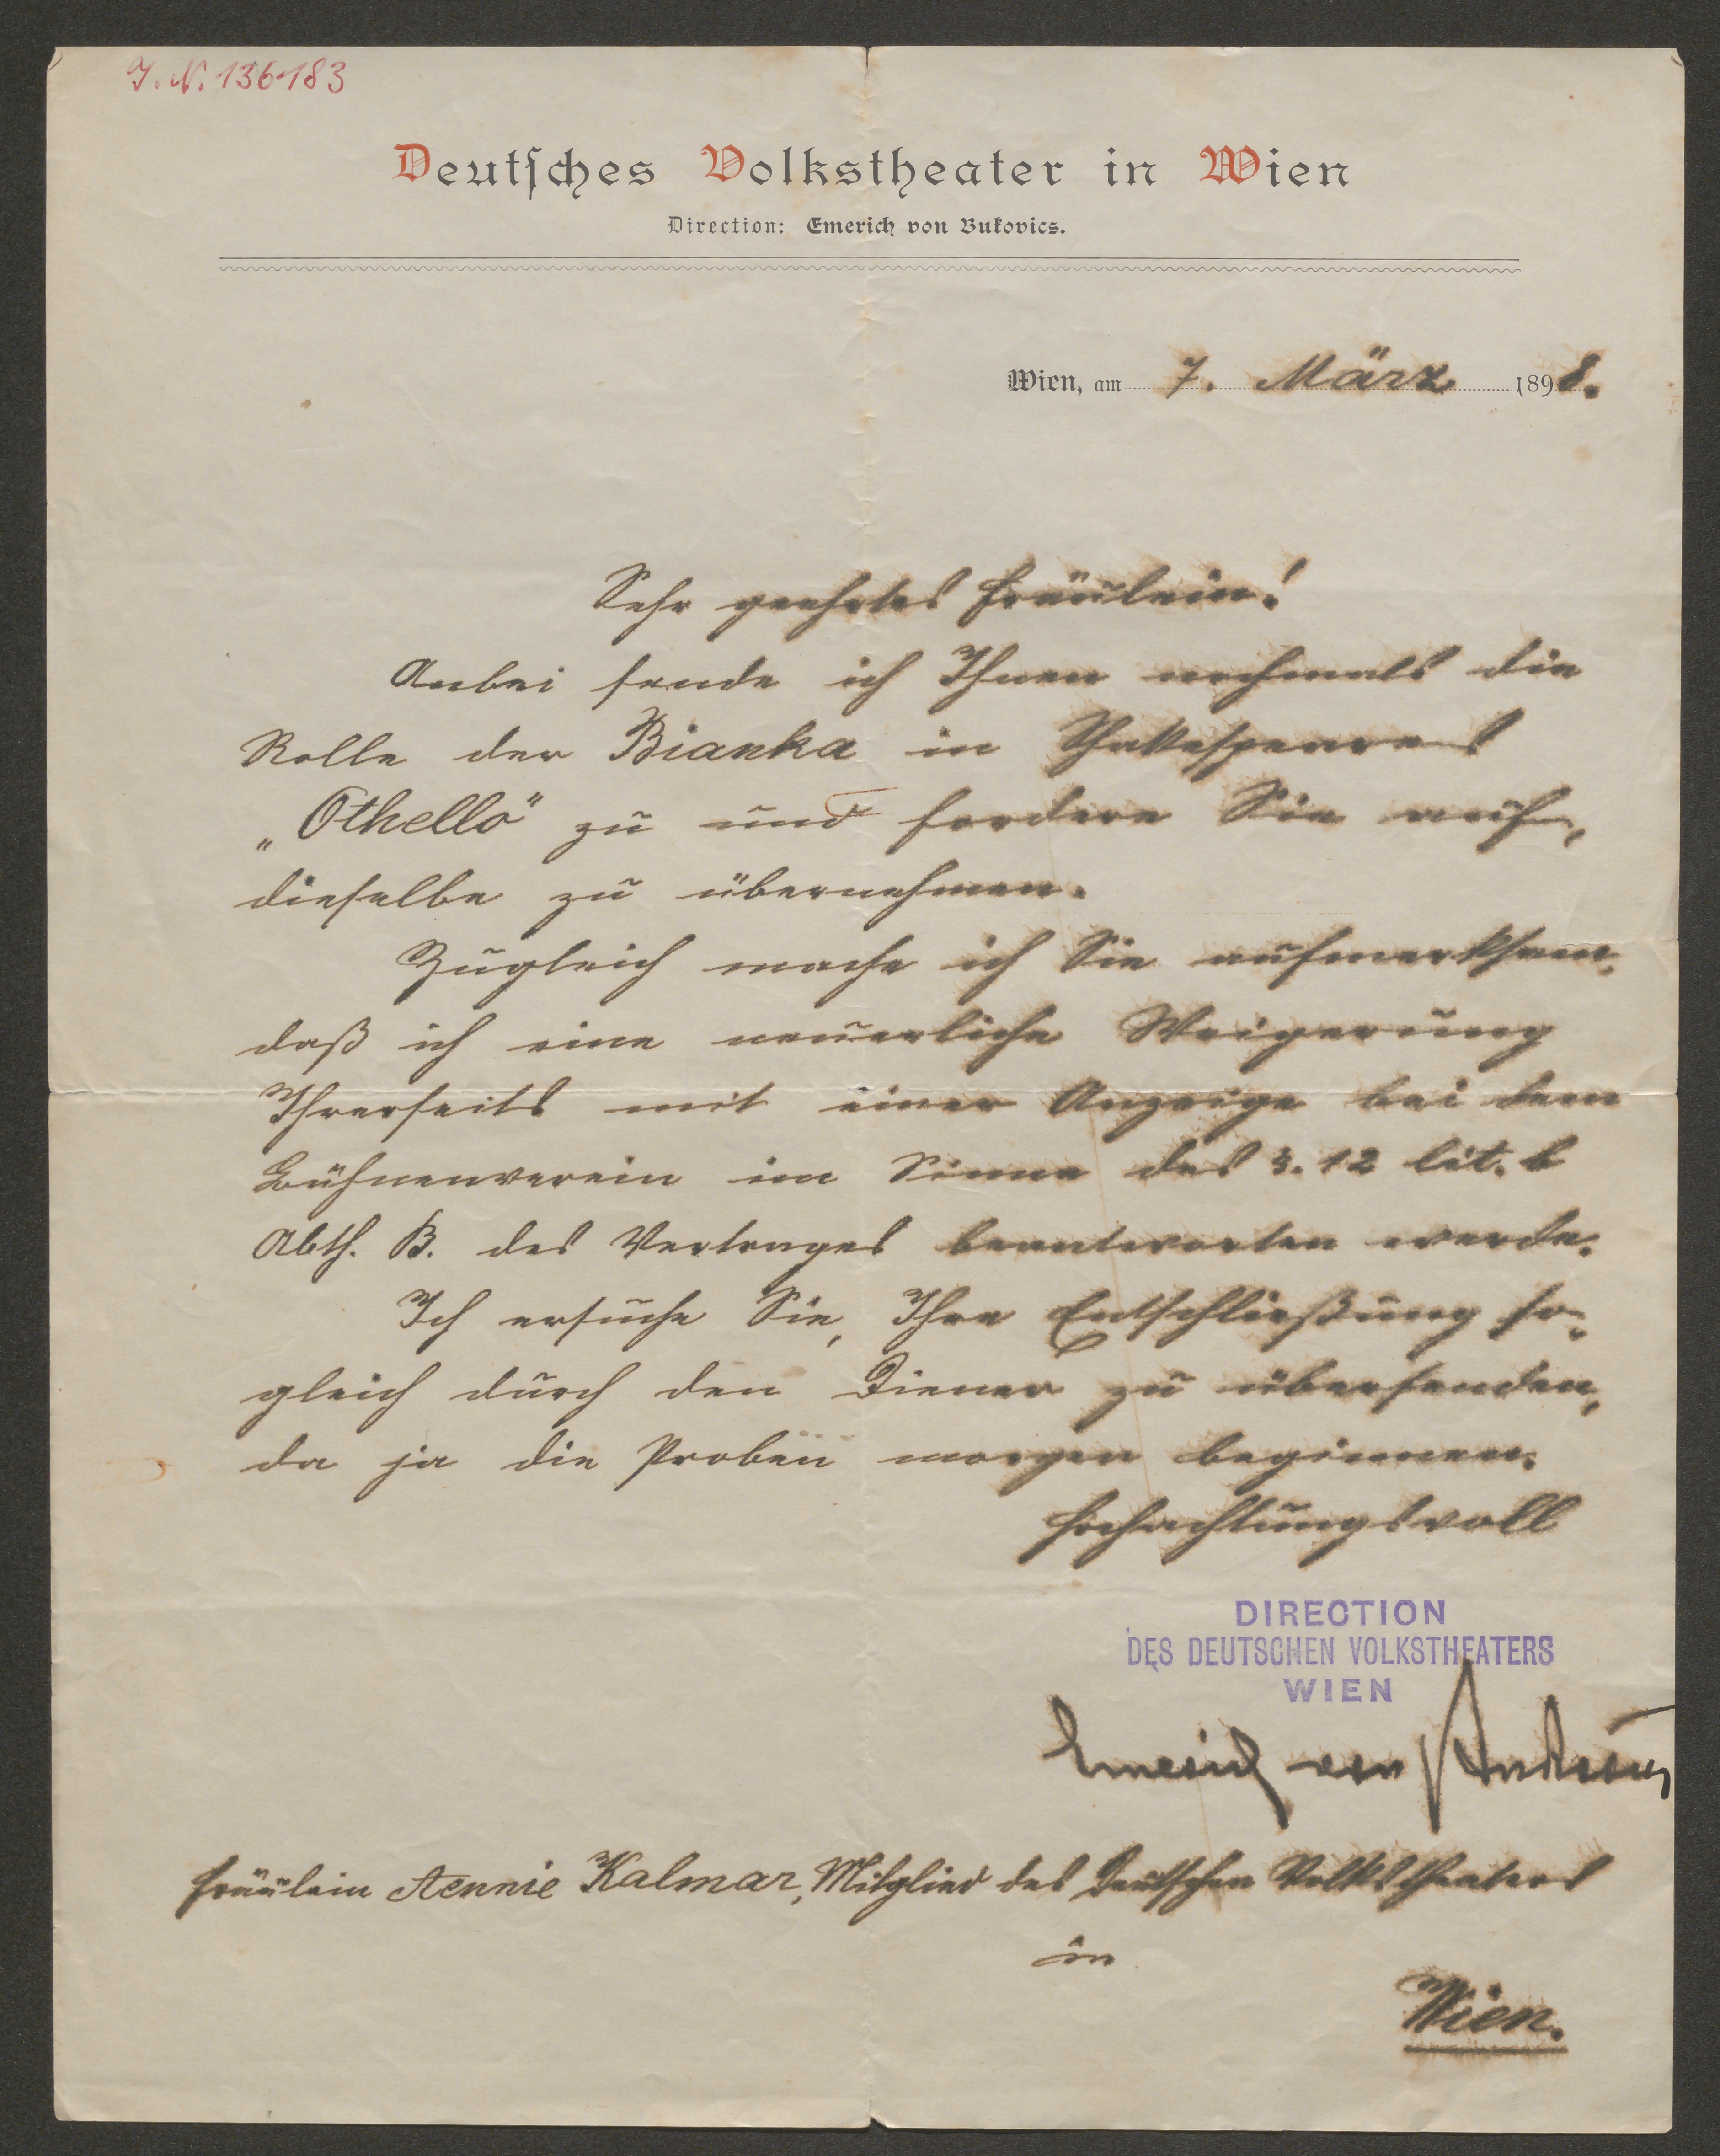 J. N. 136183
Deutſches Volkstheater in Wien
Direction: Emerich von Bukovics.
Wien, am 7. März 1898.
Sehr geehrtes Fräulein!
Anbei sende ich Ihnen nochmals die
Rolle der Bianka in Shakespeares
„Othello" zu und fordere Sie auf,
dieselbe zu übernehmen.
Zugleich mache ich Sie aufmerksam,
daß ich eine neuerliche Weigerung
Ihrerseits mit einer Anzeige bei dem
Bühnenverein im Sinne des §. 12 lit. b
Abth. B. des Vertrages beantworten werde.
Ich ersuche Sie, Ihre Entschließung so-
gleich durch den Diener zu übersenden,
da ja die Proben morgen beginnen.
Hochachtungsvoll
DIRECTION
DES DEUTSCHEN VOLKSTHEATERS
WIEN
Emerich von Bukovics
Fräulein Aennie Kalmar, Mitglied des Deutschen Volkstheaters
in
Wien.